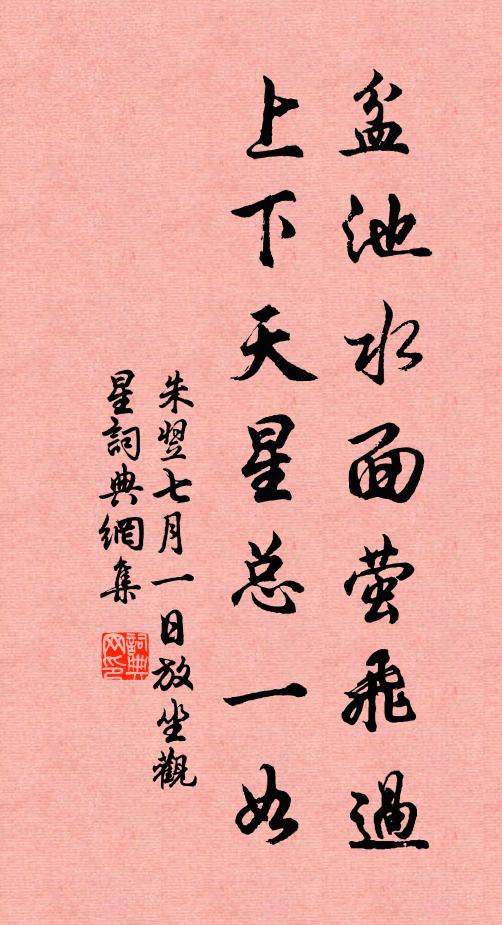 盆池水面萤飛過
上下天星总一如
朱翌七月一日放坐觀
星詞典網集
詞典
网印